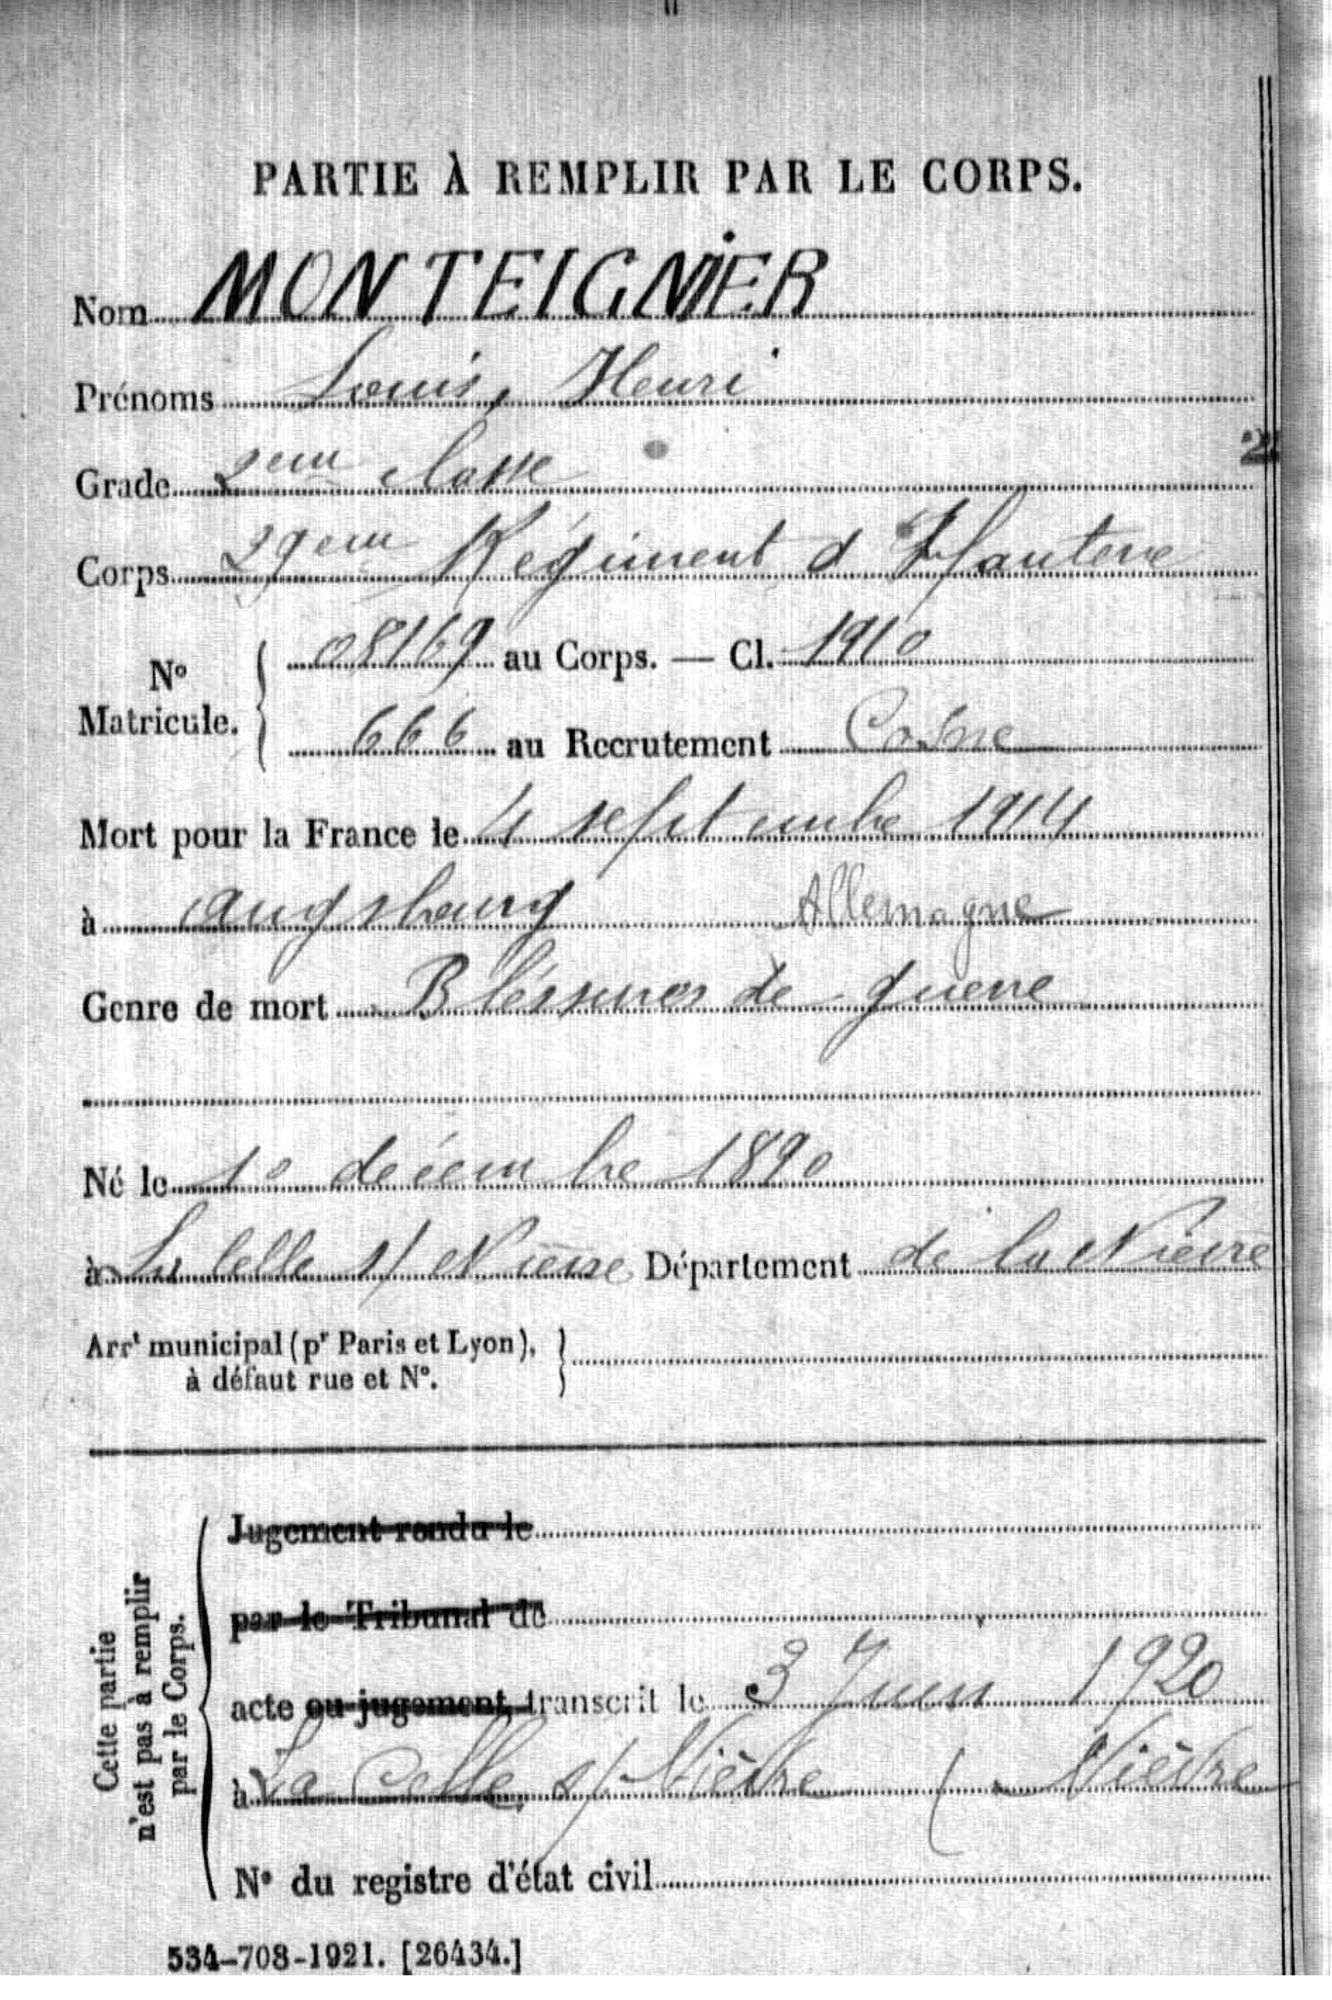 PARTIE À REMPLIR PAR LE CORPS.
Nom MONTEIGNIER
Prénoms Louis, Henri
Grade 2eme classe
2
Corps 29eme Régiment d'Infanterie
N° Matricule. 08169 au Corps. — Cl. 1910
666 au Recrutement Cosne
Mort pour la France le 4 septembre 1914
à Augsbourg Allemagne
Genre de mort Bléssures de guerre
Né le 10 décembre 1890
à La Celle s/ Nièvre Département de la Nièvre
Arrt municipal (pr Paris et Lyon),
à défaut rue et N°.
Cette partie
n'est pas à remplir
par le Corps.
Jugement rendu le
par le Tribunal de
acte ou jugement transcrit le 3 Juin 1920
à La Celle s/ Nièvre ( Nièvre
N° du registre d'état civil
534-708-1921. [26434.]